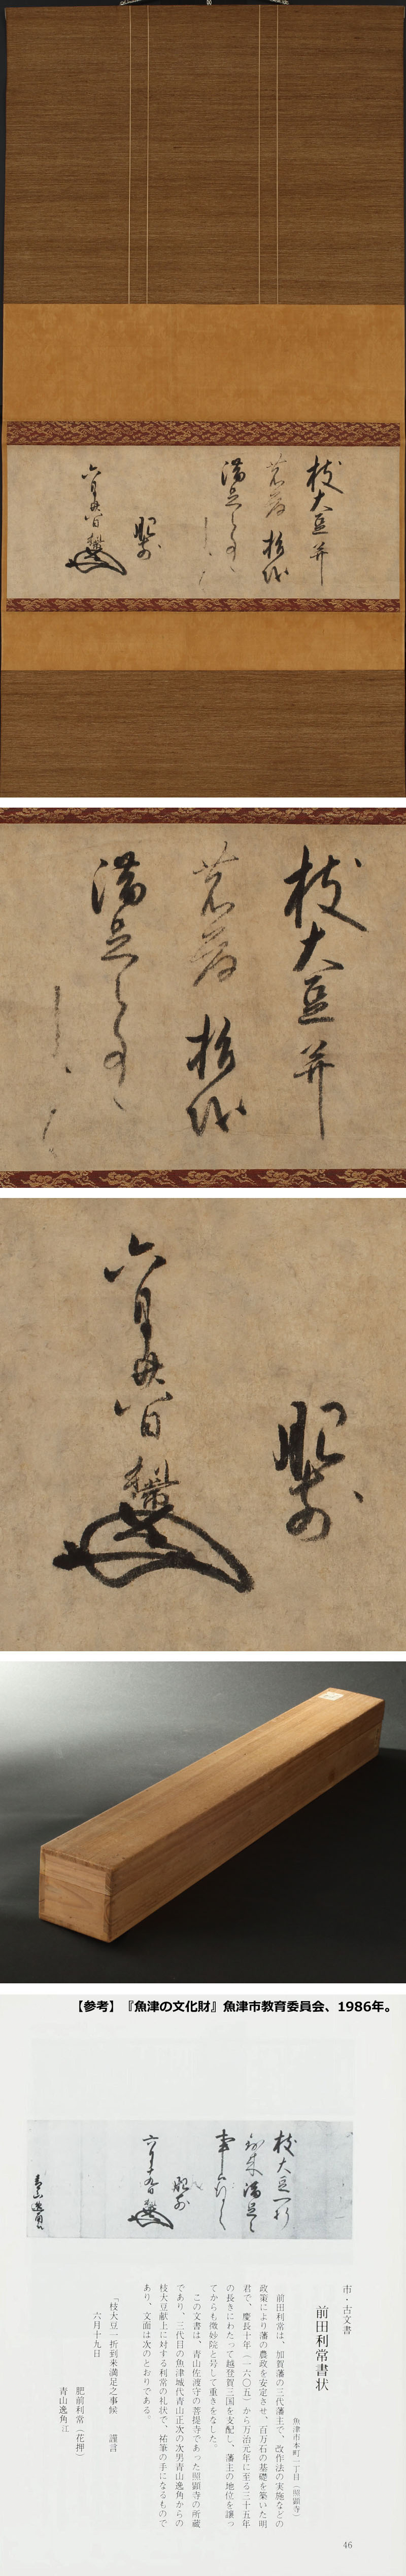 枝大豆并
満足
肥前
六月廿八日
枝大豆并
満足
六月廿八日
肥前
【参考】『魚津の文化財』魚津市教育委員会、1986年。
枝大豆一折
到来満足之
事候
肥前
六月十九日
市・古文書
前田利常書状
魚津市本町一丁目（照顕寺）
前田利常は、加賀藩の三代藩主で、改作法の実施などの
政策により藩の農政を安定させ、百万石の基礎を築いた明
君で、慶長十年（一六〇五）から万治元年に至る三十五年
の長きにわたって越登賀三国を支配し、藩主の地位を譲っ
てからも微妙院と号して重きをなした。
この文書は、青山佐渡守の菩提寺であった照顕寺の所蔵
であり、三代目の魚津城代青山正次の次男青山逸角からの
枝大豆献上に対する利常の礼状で、祐筆の手になるもので
あり、文面は次のとおりである。
「枝大豆一折到来満足之事候　謹言
六月十九日
肥前利常（花押）
青山逸角江
46